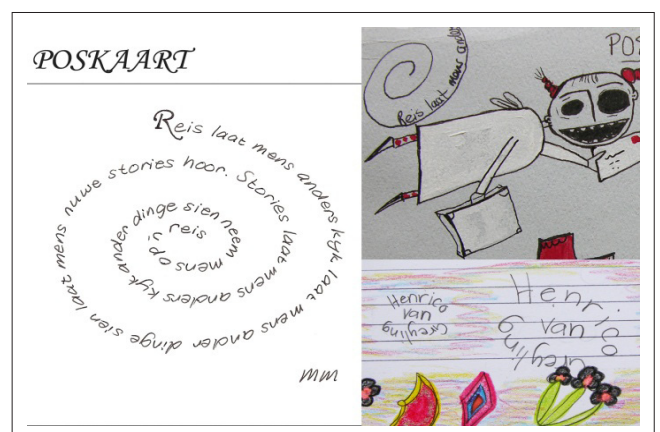 POSKAART
Reis laat mens anders kyk laat mens ander dinge sien laat mens nuwe stories hoor. Stories laat mens anders kyk ander dinge sien neem mens op 'n reis
mm
POS
Reis laat mens ander
Henrico
van
Greyling
Henrico
van
Greyling